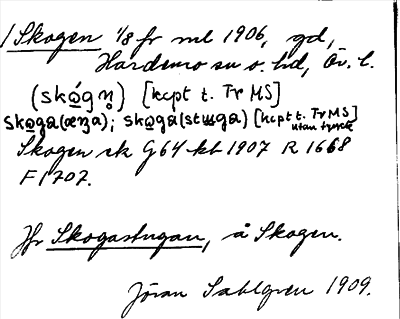 / Skogen 1/8 fr ml 1906, gd,
Hardemo sn o. hd, Ör. l.
(skǫ́gn̥) [kcpt t. Tr MS]
skǫga(œŋa); skǫga(stɯga) [kcpt t. Tr MS] utan tryck
Skogen ek G64 kb 1907 R 1668
F1702.
Jfr Skogastugan, å Skogen.
Jöran Sahlgren 1909.